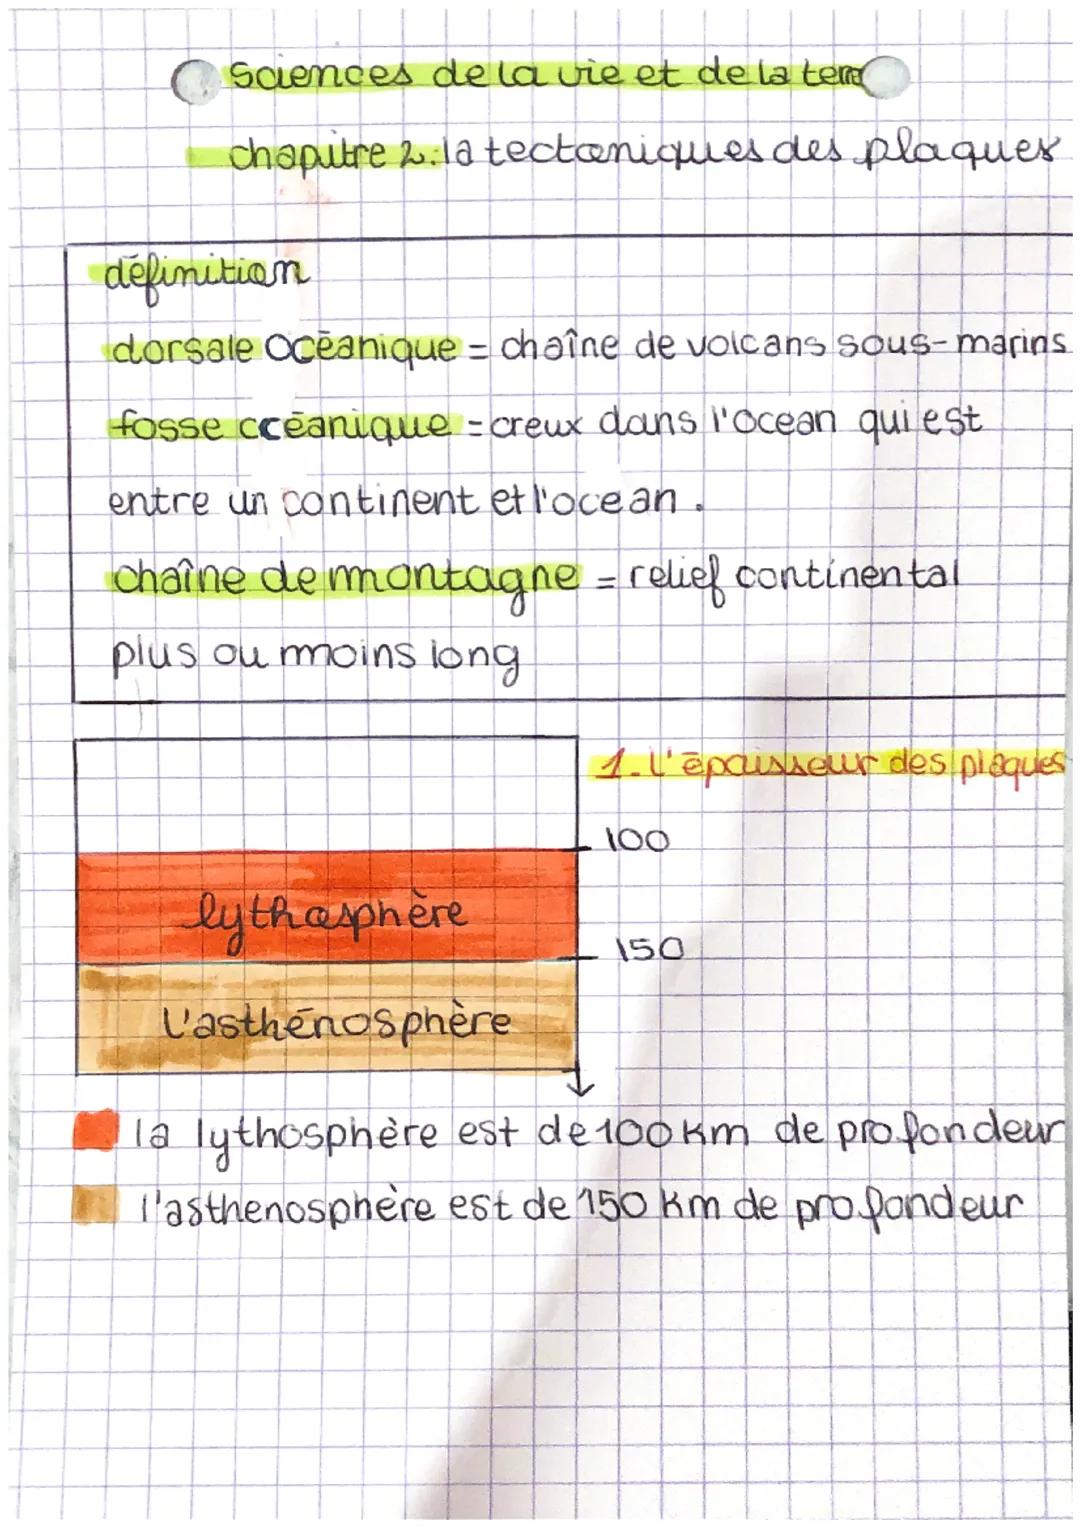 Sciences de la vie et de la terre
chapitre 2: la tectoniques des plaques
définition
dorsale océanique = chaîne de volcans sous-marins
fosse océanique = creux dans l'ocean qui est
entre un continent et l'ocean.
chaîne de montagne = relief continental
plus ou moins long
1. L'épaisseur des plaques
100
lythosphère
150
L'asthénosphère
la lythosphère est de 100 km de profondeur
l'asthenosphère est de 150 km de profondeur